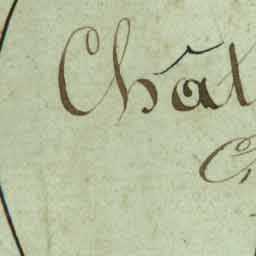 Chât
C